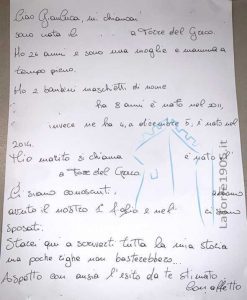 Ciao Gianluca, mi chiamo
sono nata il a Torre del Greco.
Ho 26 anni e sono una moglie e mamma a
tempo pieno.
Ho 2 bambini maschietti di nome
ha 8 anni è nato nel 2011,
invece ne ha 4, a dicembre 5, è nato nel
2014.
Mio marito si chiama è nato il
a Torre del Greco.
Ci siamo conosciuti,
avuto il nostro 1° figlio e nel ci siamo
sposati.
Starei qui a scriverti tutta la mia storia
ma poche righe non basterebbero...
Aspetto con ansia l'esito da te stimato
Con affetto
Lafonte1905.it